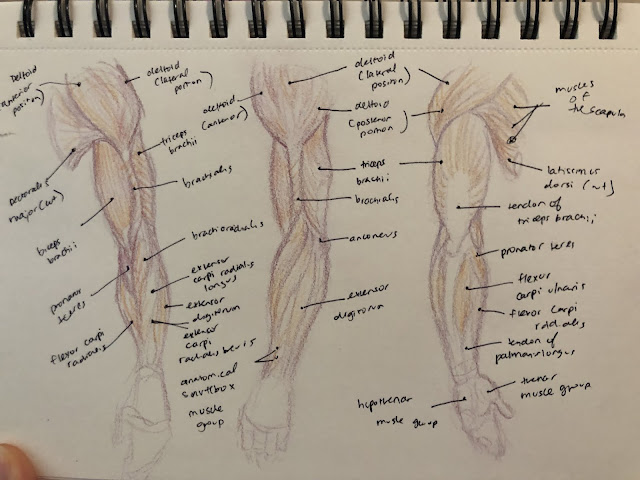 deltoid
(anterior
position)
deltoid
(lateral
portion)
triceps
brachii
brachialis
pectoralis
major (cut)
biceps
brachii
brachioradialis
pronator
teres
extensor
carpi radialis
longus
extensor
digitorum
flexor carpi
radialis
extensor
carpi
radialis brevis
anatomical
snuffbox
muscle
group
deltoid
(lateral
position)
deltoid
(anterior)
deltoid
(posterior
portion)
triceps
brachii
brachialis
anconeus
extensor
digitorum
muscles
of
the scapula
latissimus
dorsi (cut)
tendon of
triceps brachii
pronator teres
flexor
carpi ulnaris
flexor carpi
radialis
tendon of
palmaris longus
hypothenar
muscle group
thenar
muscle group